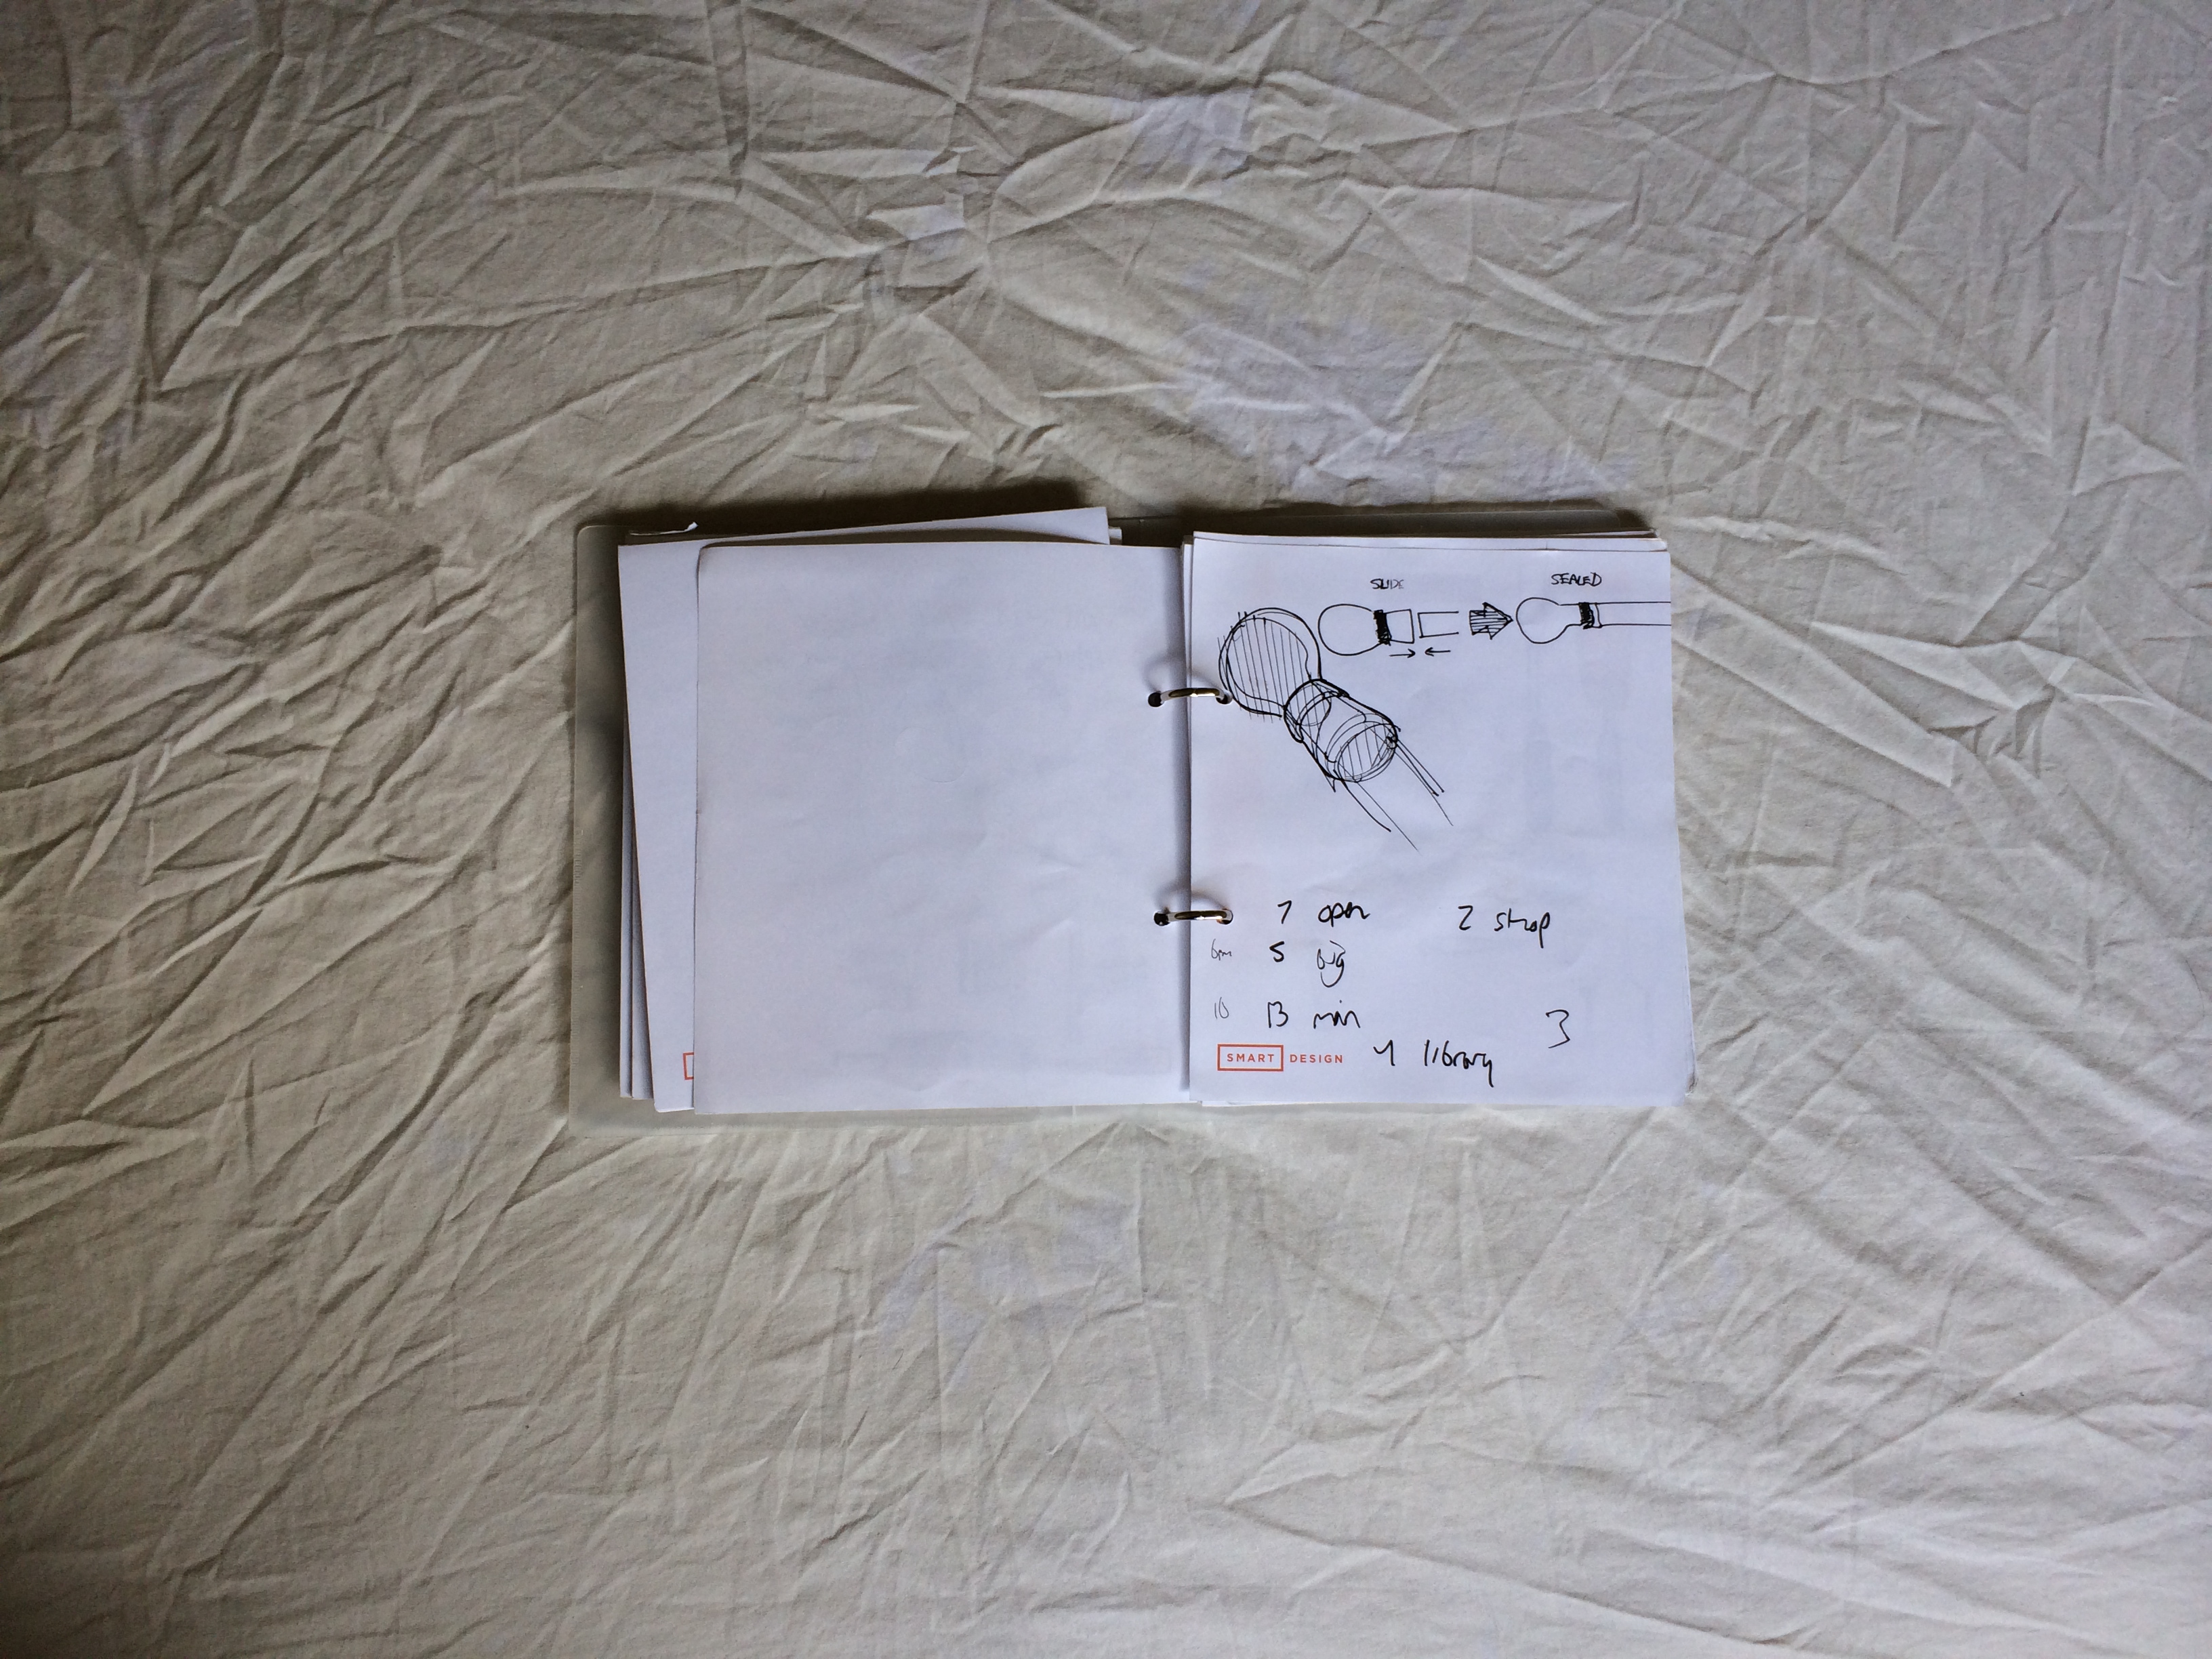 SLIDE SEALED
7 open 2 strap
6pm 5 big
10 13 min
3
SMART DESIGN 4 library